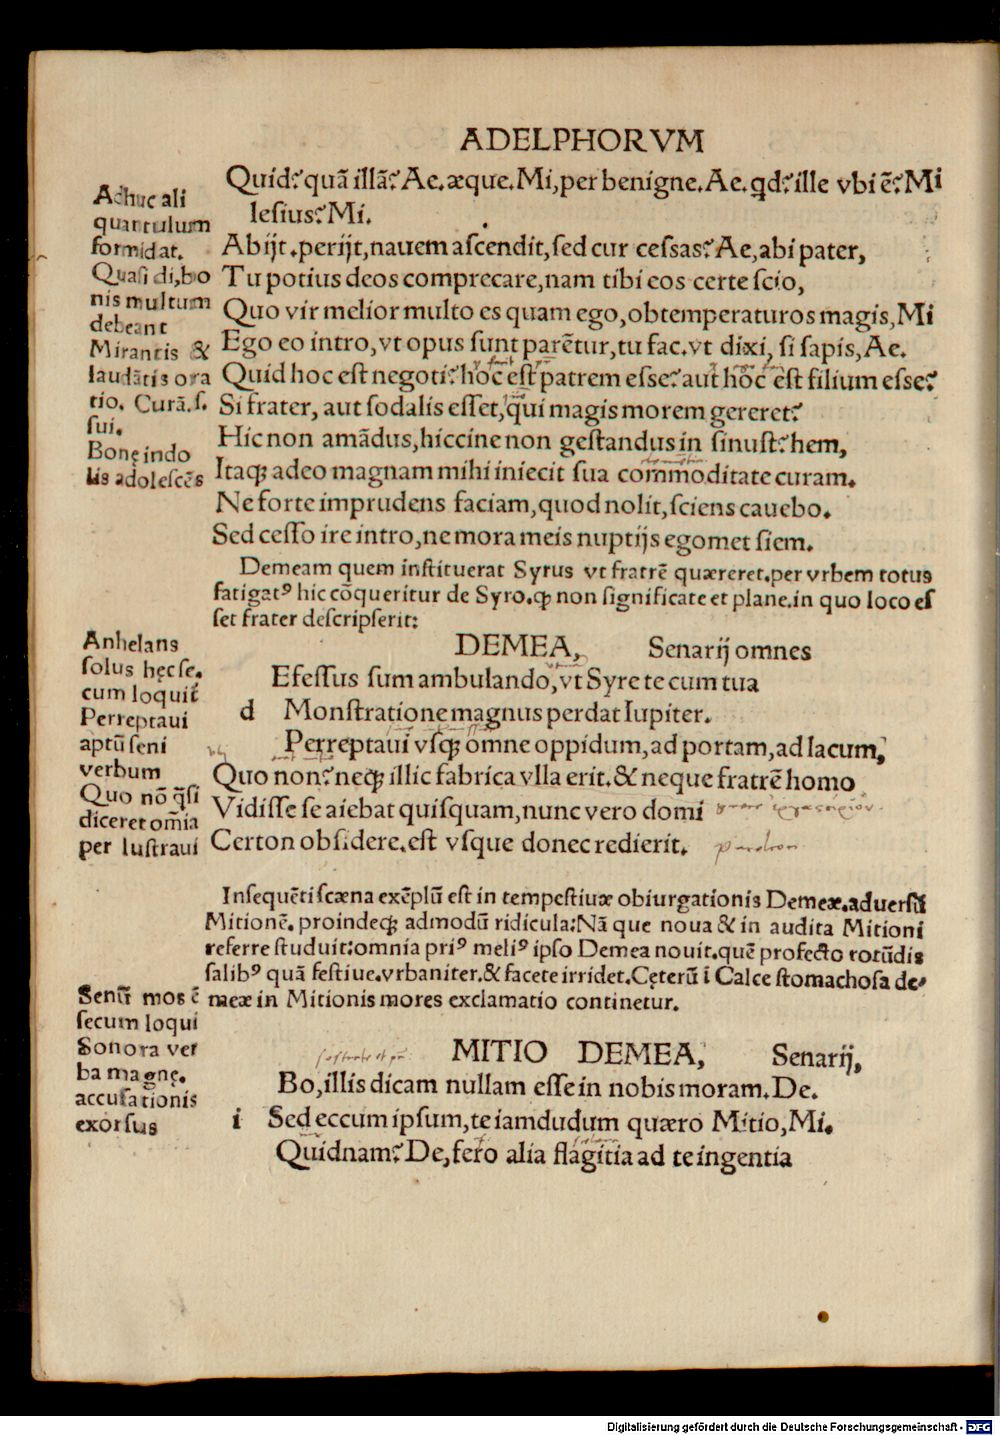 ADELPHORVM
Quid? quā illā? Ae. æque. Mi, per benigne. Ae. qd? ille vbi ē? Mi
lesius? Mi.
Abijt. perijt, nauem ascendit, sed cur cessas? Ae, abi pater,
Tu potius deos comprecare, nam tibi eos certe scio,
Quo vir melior multo es quam ego, obtemperaturos magis, Mi
Ego eo intro, vt opus sunt parētur, tu fac. vt dixi, si sapis, Ae.
Quid hoc est negoti? hoc est patrem esse? aut hoc est filium esse?
Si frater, aut sodalis esset, qui magis morem gereret?
Hic non amādus, hiccine non gestandus in sinust? hem,
Itaqꝫ adeo magnam mihi iniecit sua commoditate curam.
Ne forte imprudens faciam, quod nolit, sciens cauebo.
Sed cesso ire intro, ne mora meis nuptijs egomet siem.
Adhuc ali
quantulum
formidat.
Quasi di, bo
nis multum
debeant
Mirantis &
laudātis ora
tio. Curā. s.
sui.
Bonę indo
lis adolescēs
Demeam quem instituerat Syrus vt fratrē quæreret. per vrbem totus
fatigatꝰ hic cōqueritur de Syro. ꝙ non significate et plane. in quo loco es
set frater descripserit:
DEMEA, Senarij omnes
Efessus sum ambulando, vt Syre te cum tua
d Monstratione magnus perdat Iupiter.
Perreptaui vsqꝫ omne oppidum, ad portam, ad lacum,
Quo non? neqꝫ illic fabrica vlla erit. & neque fratrē homo
Vidisse se aiebat quisquam, nunc vero domi
Certon obsidere. est vsque donec redierit.
Anhelans
solus hęc se.
cum loquit̄
Perreptaui
aptū seni
verbum
Quo nō q̄si
diceret om̄ia
per lustraui
Insequēti scæna exēplū est in tempestiuæ obiurgationis Demeæ. aduersū
Mitionē. proindeqꝫ admodū ridicula: Nā que noua & in audita Mitioni
referre studuit: omnia priꝰ meliꝰ ipso Demea nouit. quē profecto rotūdis
salibꝰ quā festiue. vrbaniter. & facete irridet. Cęterū ī Calce stomachosa de⸗
meæ in Mitionis mores exclamatio continetur.
MITIO DEMEA, Senarij,
Bo, illis dicam nullam esse in nobis moram. De.
i Sed eccum ipsum, te iamdudum quæro Mitio, Mi.
Quidnam? De, fero alia flagitia ad te ingentia
Senū mos ē
secum loqui
Sonora ver
ba magnę.
accusationis
exorsus
Digitalisierung gefördert durch die Deutsche Forschungsgemeinschaft - DFG